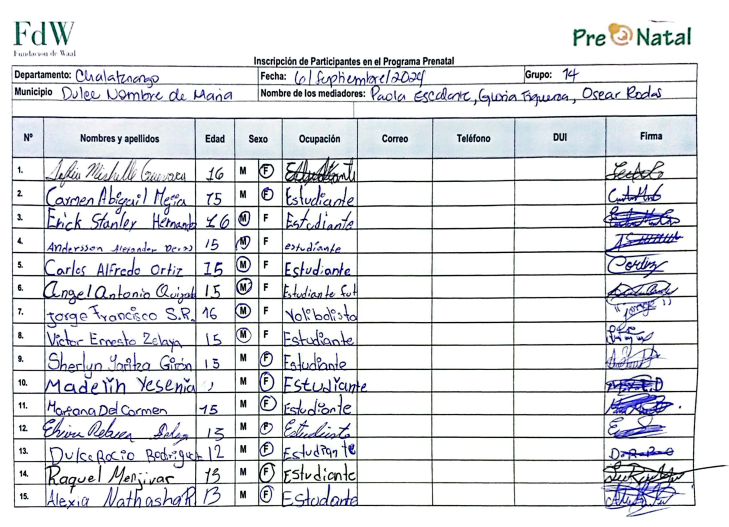 FdW
Fundación de Waal
Pre Natal
Inscripción de Participantes en el Programa Prenatal
Departamento: Chalatenango Fecha: 6/Septiembre/2024 Grupo: 14
Municipio Dulce Nombre de Maria Nombre de los mediadores: Paola Escalante, Gloria Figueroa, Oscar Rodas
N° Nombres y apellidos Edad Sexo Ocupación Correo Teléfono DUI Firma
1. Mishelle Guevara 16 M F
2. Carmen Abigail Mejia 15 M F Estudiante
3. Erick Stanley Hernand 16 M F Estudiante
4. Andersson Alexander 15 M F estudiante
5. Carlos Alfredo Ortiz 15 M F Estudiante
6. Angel Antonio Quijad 15 M F Estudiante fut
7. Jorge Francisco S.R. 16 M F Volibolista "Jorge"
8. Victor Ernesto Zelaya 15 M F Estudiante
9. Sherlyn Yaritza Girón 15 M F Estudiante
10. Madelin Yesenia M F Estudiante
11. Mariana Del Carmen 15 M F Estudiante
12. Elvira Rebeca 15 M F Estudiante
13. Dulce Rocio Rodriguez 12 M F Estudiante D-R-R-O
14. Raquel Menjivar 13 M F Estudiante
15. Alexia Nathasha R 13 M F Estudante